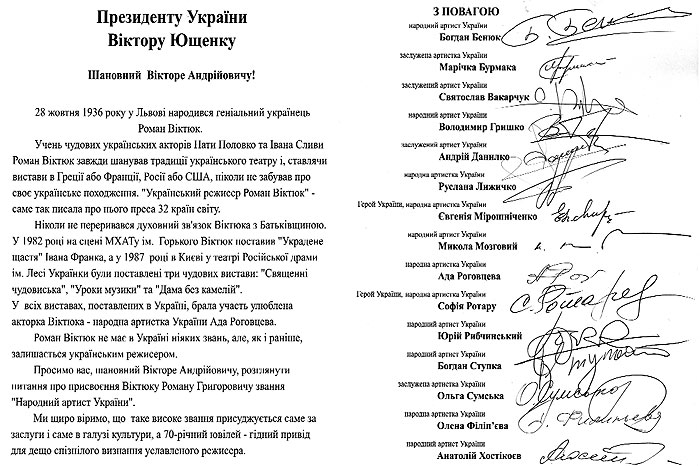 Президенту України
Віктору Ющенку
Шановний Вікторе Андрійовичу!
28 жовтня 1936 року у Львові народився геніальний українець
Роман Віктюк.
Учень чудових українських акторів Пати Половко та Івана Сливи
Роман Віктюк завжди шанував традиції українського театру і, ставлячи
вистави в Греції або Франції, Росії або США, ніколи не забував про
своє українське походження. "Український режисер Роман Віктюк" -
саме так писала про нього преса 32 країн світу.
Ніколи не переривався духовний зв'язок Віктюка з Батьківщиною.
У 1982 році на сцені МХАТу ім. Горького Віктюк поставив "Украдене
щастя" Івана Франка, а у 1987 році в Києві у театрі Російської драми
ім. Лесі Українки були поставлені три чудових вистави: "Священні
чудовиська", "Уроки музики" та "Дама без камелій".
У всіх виставах, поставлених в Україні, брала участь улюблена
акторка Віктюка - народна артистка України Ада Роговцева.
Роман Віктюк не має в Україні ніяких звань, але, як і раніше,
залишається українським режисером.
Просимо вас, шановний Вікторе Андрійовичу, розглянути
питання про присвоєння Віктюку Роману Григоровичу звання
"Народний артист України".
Ми щиро віримо, що таке високе звання присуджується саме за
заслуги і саме в галузі культури, а 70-річний ювілей - гідний привід
для дещо спізнілого визнання уславленого режисера.
З ПОВАГОЮ
народний артист України
Богдан Бенюк
заслужена артистка України
Марічка Бурмака
заслужений артист України
Святослав Вакарчук
народний артист України
Володимир Гришко
заслужений артист України
Андрій Данилко
народна артистка України
Руслана Лижичко
Герой України, народна артистка України
Євгенія Мірошніченко
народний артист України
Микола Мозговий
народна артистка України
Ада Роговцева
Герой України, народна артистка України
Софія Ротару
народний артист України
Юрій Рибчинський
народний артист України
Богдан Ступка
заслужена артистка України
Ольга Сумська
народна артистка України
Олена Філіп'єва
народний артист України
Анатолій Хостікоєв